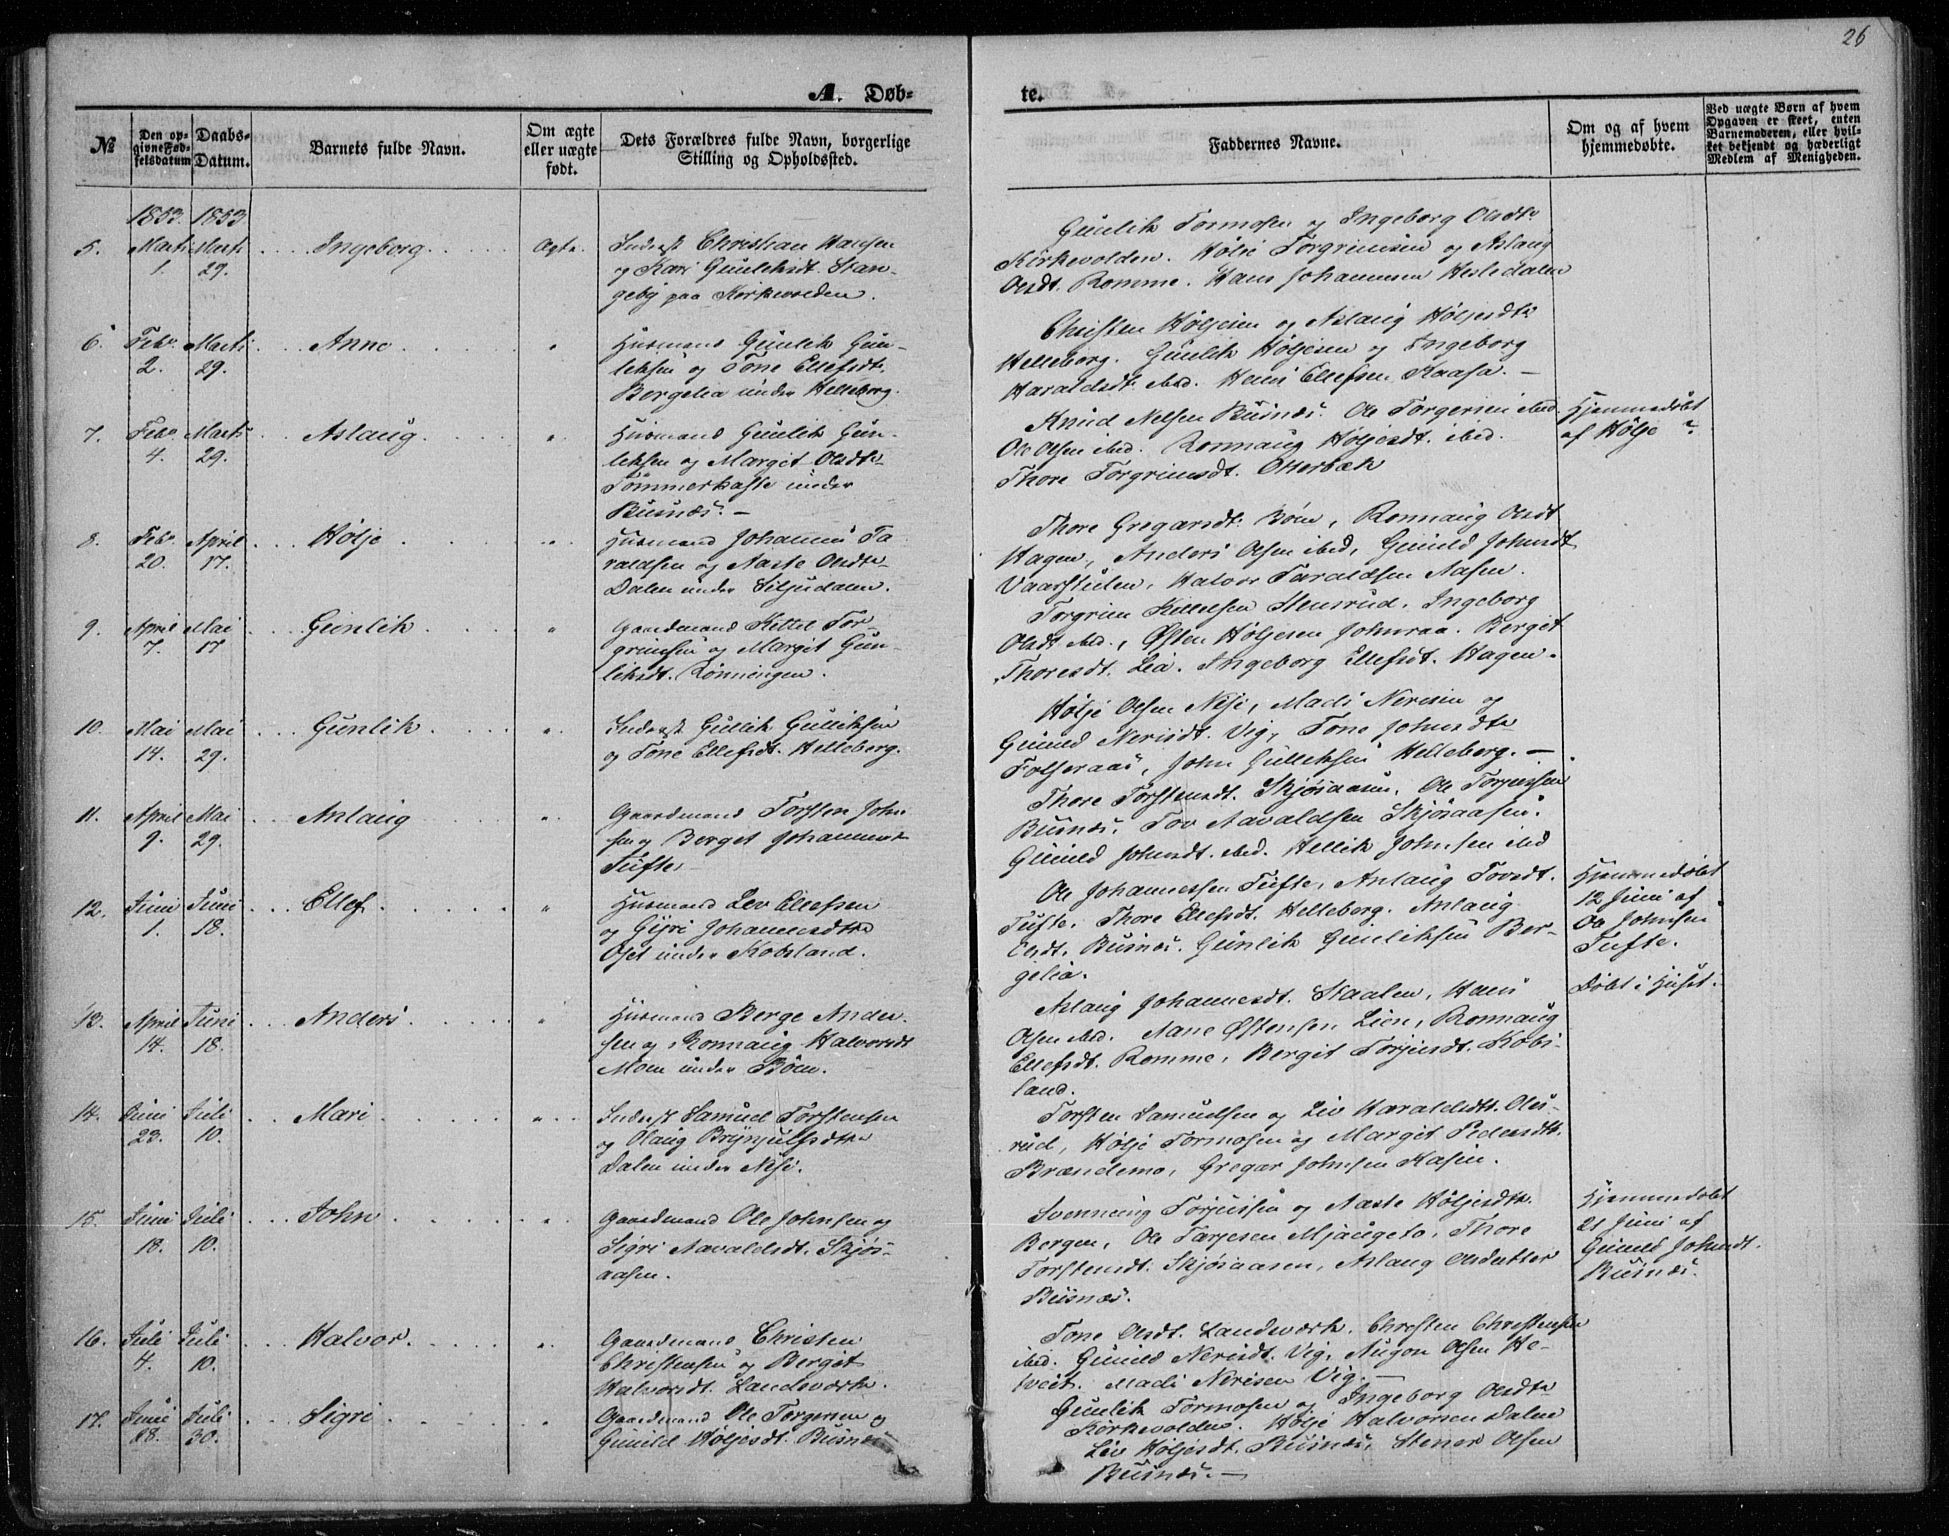 26
A. Døb-
te.
№
Den op-
givne Fød-
selsdatum
Daabs-
Datum.
Barnets fulde Navn.
Om ægte
eller uægte
født.
Dets Forældres fulde Navn, borgerlige
Stilling og Opholdssted.
Faddernes Navne.
Om og af hvem
hjemmedøbte.
Ved uægte Børn af hvem
Opgaven er skeet, enten
Barnemoderen, eller hvil-
ket bekjendt og hæderligt
Medlem af Menigheden.
1853. 1853
5. Marti 1. Marti 29. Ingeborg. Ægte.
Inderst Christian Hansen
og Kari Gunleksdt. Stan-
geby paa Kirkevolden.
Gunlik Tormosen og Ingeborg Olsdtr
Kirkevolden. Hølje Torgrimsen og Aslaug
Olsdt. Romme. Hans Johannesen Hesledalen
6. Febr. 2. Marti 29. Anne "
Husmand Gunlik Gun-
leksen og Tone Ellefsdt.
Bergelia under Helleberg.
Christen Høljesen og Aslaug Høljesdtr
Helleborg. Gunlik Høljesen og Ingeborg
Haraldsdt. ibid. Hans Ellefsen Kaasa. —
7. Febr. 4. Marti 29. Aslaug. "
Husmand Gunlik Gun-
leksen og Margit Olsdtr
Tømmerkaste under
Busnæs. —
Knud Nelsen Busnæs. Ole Torgersen ibid.
Ole Olsen ibid. Ronnaug Høljesdt. ibid.
Thore Torgrimsdt. Otterbæk
Hjemmedøbt
af Hølje
8. Febr. 20. April 17. Hølje "
Husmand Johannes Ta
raldsen og Aaste Olsdtr
Dalen under Siljudalen.
Thore Gregarsdt. Bøen, Ronnaug Olsdt
Hagen, Anders Olsen ibid, Gunild Johnsdt
Vaarstulen, Halvor Taraldsen Aasen.
9. April 7. Mai 17 Gunlik "
Gaardmand Kittel Tor-
grimsen og Margit Gun-
leksdt. Rønningen.
Torgrim Kittelsen Stensrud. Ingeborg
Olsdt ibid., Østen Høljesen Johnraa. Bergit
Thoresdt. Lia. Ingeborg Ellefsdt. Hagen.
10. Mai 14. Mai 29. Gunlik "
Inderst Gullik Gulliksen
og Tone Ellefsdt. Helleberg.
Hølje Olsen Nesi, Madi Nerisen og
Gunild Nerisdt. Vig, Tone Johnsdtr
Folseraas, John Gulleksen Helleberg. —
11. April 9. Mai 29. Anlaug "
Gaardmand Torsten John
sen og Berget Johannesdt
Tufte
Thore Torstensdt. Skjøsaasen, Ole Torjensen
Busnæs. Tov Aavaldsen Skjøsaasen.
Gunild Johnsdt. ibid. Hellik Johnsen ibid
12. Juni 1. Juni 18. Ellef "
Husmand Lev Ellefsen
og Gyri Johannesdtr
Oset under Kobsland.
Ole Johannessen Tufte, Anlaug Tovsdt.
Tufte. Thore Ellefsdt. Helleberg. Anlaug
Olsdt. Busnæs. Gunlik Gunleksen Ber-
gelia.
Hjemmedøbt
12 Juni af
Ole Johnsen
Tufte.
13. April 14. Juni 18. Anders "
Husmand Berge Ander-
sen og Ronnaug Halvorsdt
Moen under Bøen.
Aslaug Johannesdt. Staalen, Hans
Olsen ibid. Aane Østensen Lien, Ronnaug
Ellefsdt. Romme, Bergit Torjusdt. Kobs-
land.
Døbt i Huset.
14. Juni 23. Juli 10. Mari "
Inderst Samuel Torstensen
og Olaug Brynjulfsdtr
Dalen under Nesi.
Torsten Samuelsen og Liv Haraldsdtr. Ols-
rud, Hølje Tormosen og Margit Pedersdtr.
Brændemo, Gregar Johnsen Kasin.
15. Juni 18. Juli 10. John "
Gaardmand Ole Johnsen og
Sigri Aavaldsdt. Skjøs-
aasen.
Svenning Torjussen og Aaste Høljesdtr.
Bergen, Ole Tarjesen Mjaugeto, Thore
Torstensdt. Skjøsaasen, Aslaug Olsdatter
Busnæs.
Hjemmedøbt
21 Juni af
Gunild Johnsdt.
Busnæs.
16. Juli 4. Juli 10. Halvor "
Gaardmand Christen
Christensen og Berget
Halvorsdt. Landsværk.
Tone Olsdt. Landsværk. Christen Christensen
ibid. Gunild Nerisdt. Vig, Augon Olsen He-
tveit. Madi Nerisen Vig. —
17. Juni 18. Juli 30. Sigri
Gaardmand Ole Torgersen og
Gunild Høljesdt. Busnæs
Gunlik Tormosen og Ingeborg Olsdtr
Kirkevolden. Hølje Halvorsen Dalen
Liv Høljesdt. Busnæs, Stener Olsen
Busnæs. —